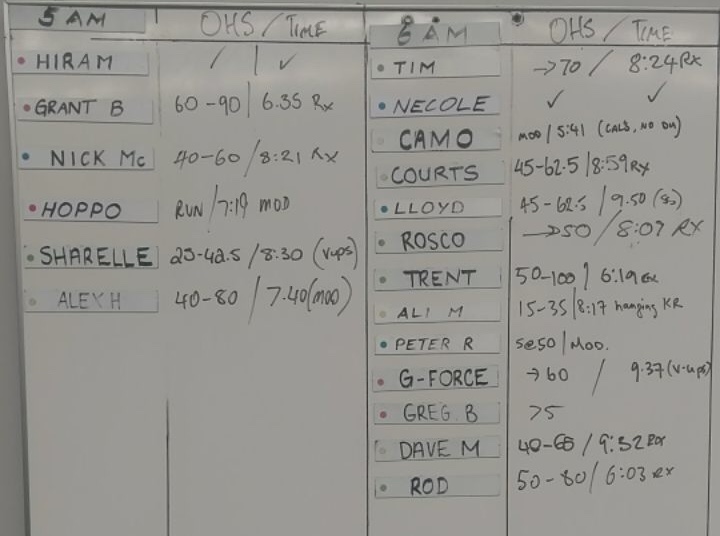 5 AM OHS / TIME
HIRAM / | ✓
GRANT B 60-90 | 6.35 Rx
NICK Mc 40-60 / 8:21 Rx
HOPPO RUN / 7:19 MOD
SHARELLE 25-42.5 / 8:30 (V-ups)
ALEX H 40-80 / 7.40 (MOD)
6 AM OHS / TIME
TIM →70 / 8:24 Rx
NECOLE ✓ ✓
CAMO MOD / 5:41 (CALS, NO DU)
COURTS 45-62.5 / 8:59 Rx
LLOYD 45-62.5 / 9.50
ROSCO →50 / 8:09 RX
TRENT 50-100 / 6:19 Rx
ALI M 15-35 / 8:17 hanging KR
PETER R 5@50 / MOD.
G-FORCE →60 / 9.37 (V-ups)
GREG. B 75
DAVE M 40-65 / 9:32 Rx
ROD 50-80 / 6:03 RX